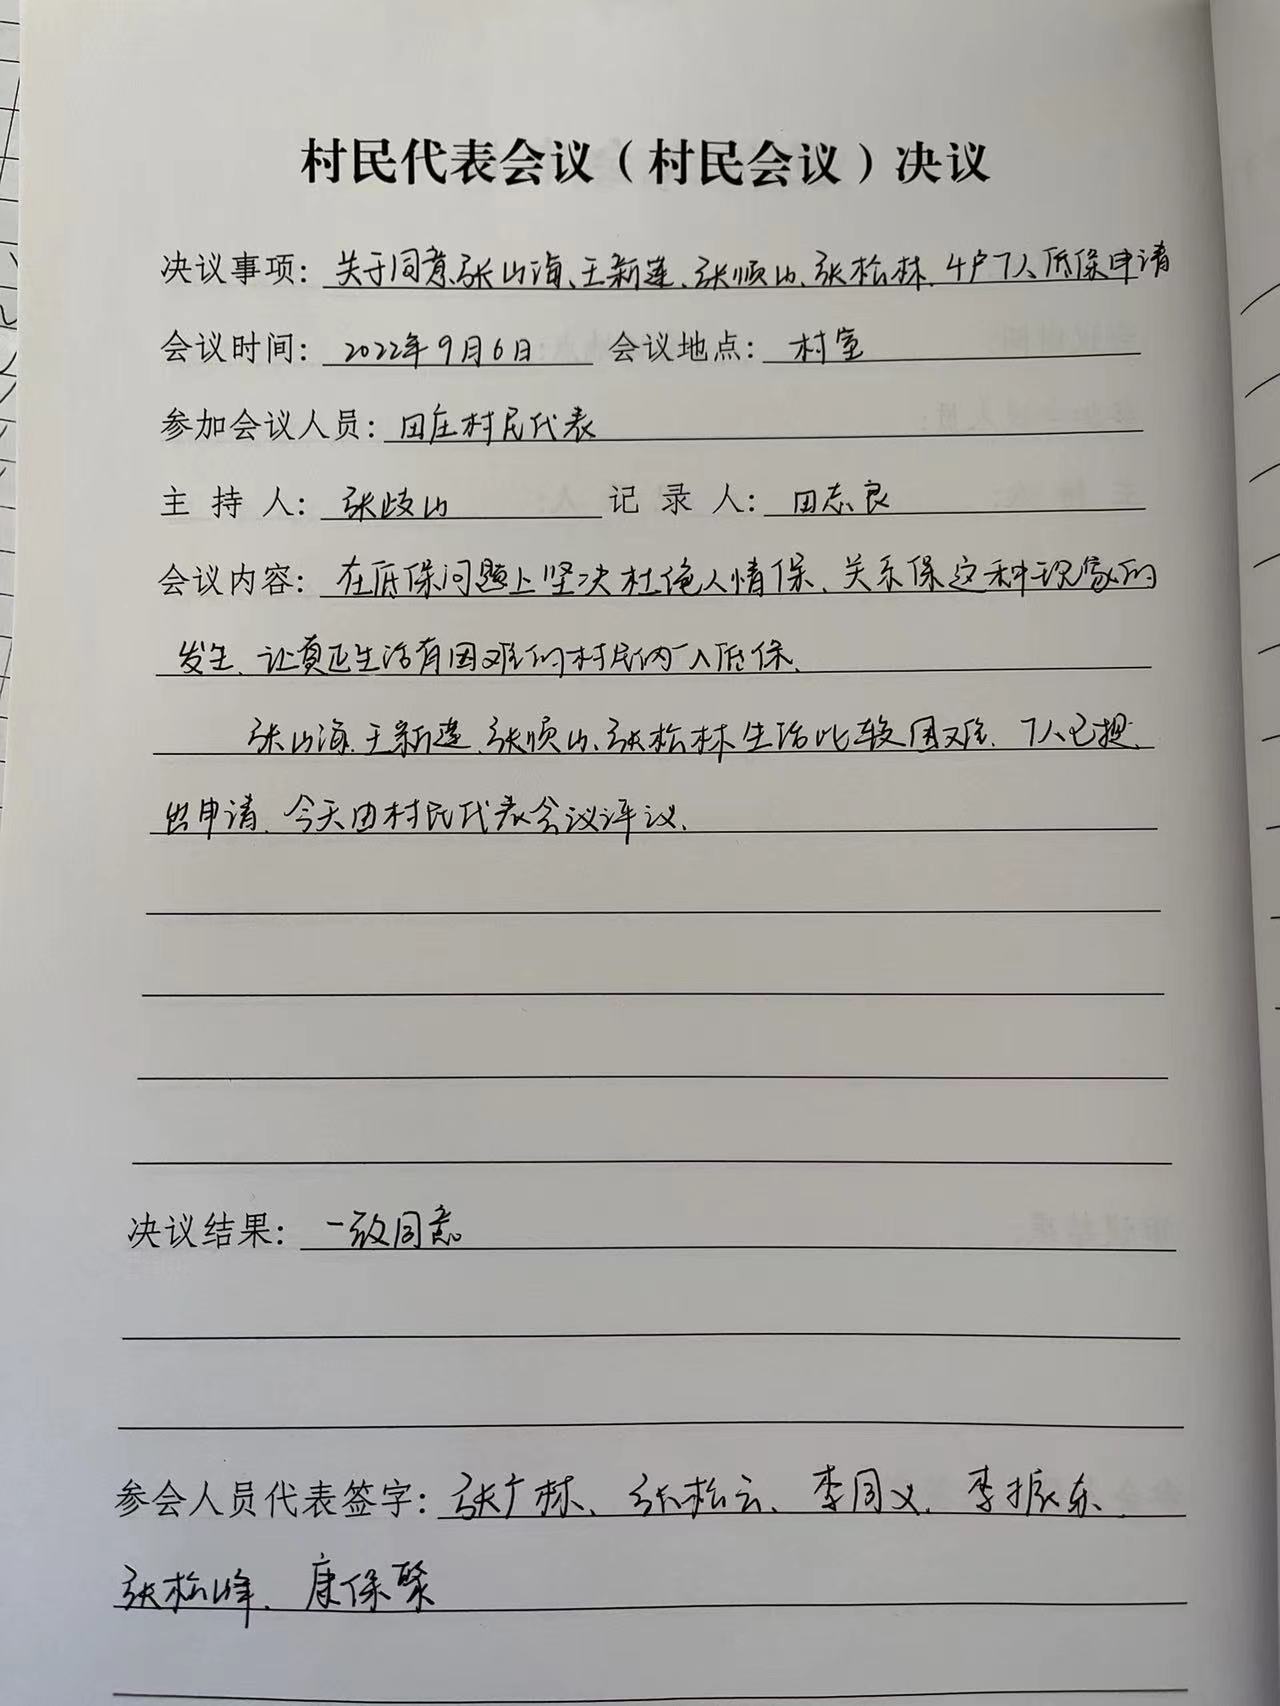 村民代表会议（村民会议）决议
决议事项：关于同意张山海、王新莲、张顺山、张松林、4户7人低保申请
会议时间：2022年9月6日 会议地点：村室
参加会议人员：田庄村民代表
主 持 人：张歧山 记 录 人：田志良
会议内容：在低保问题上坚决杜绝人情保、关系保这种现象的
发生、让真正生活有困难的村民纳入低保、
张山海、王新莲、张顺山、张松林生活比较困难、7人已提
出申请、今天由村民代表会议评议、
决议结果：一致同意
参会人员代表签字：张广林、张松云、李同义、李振东、
张松峰、康保聚